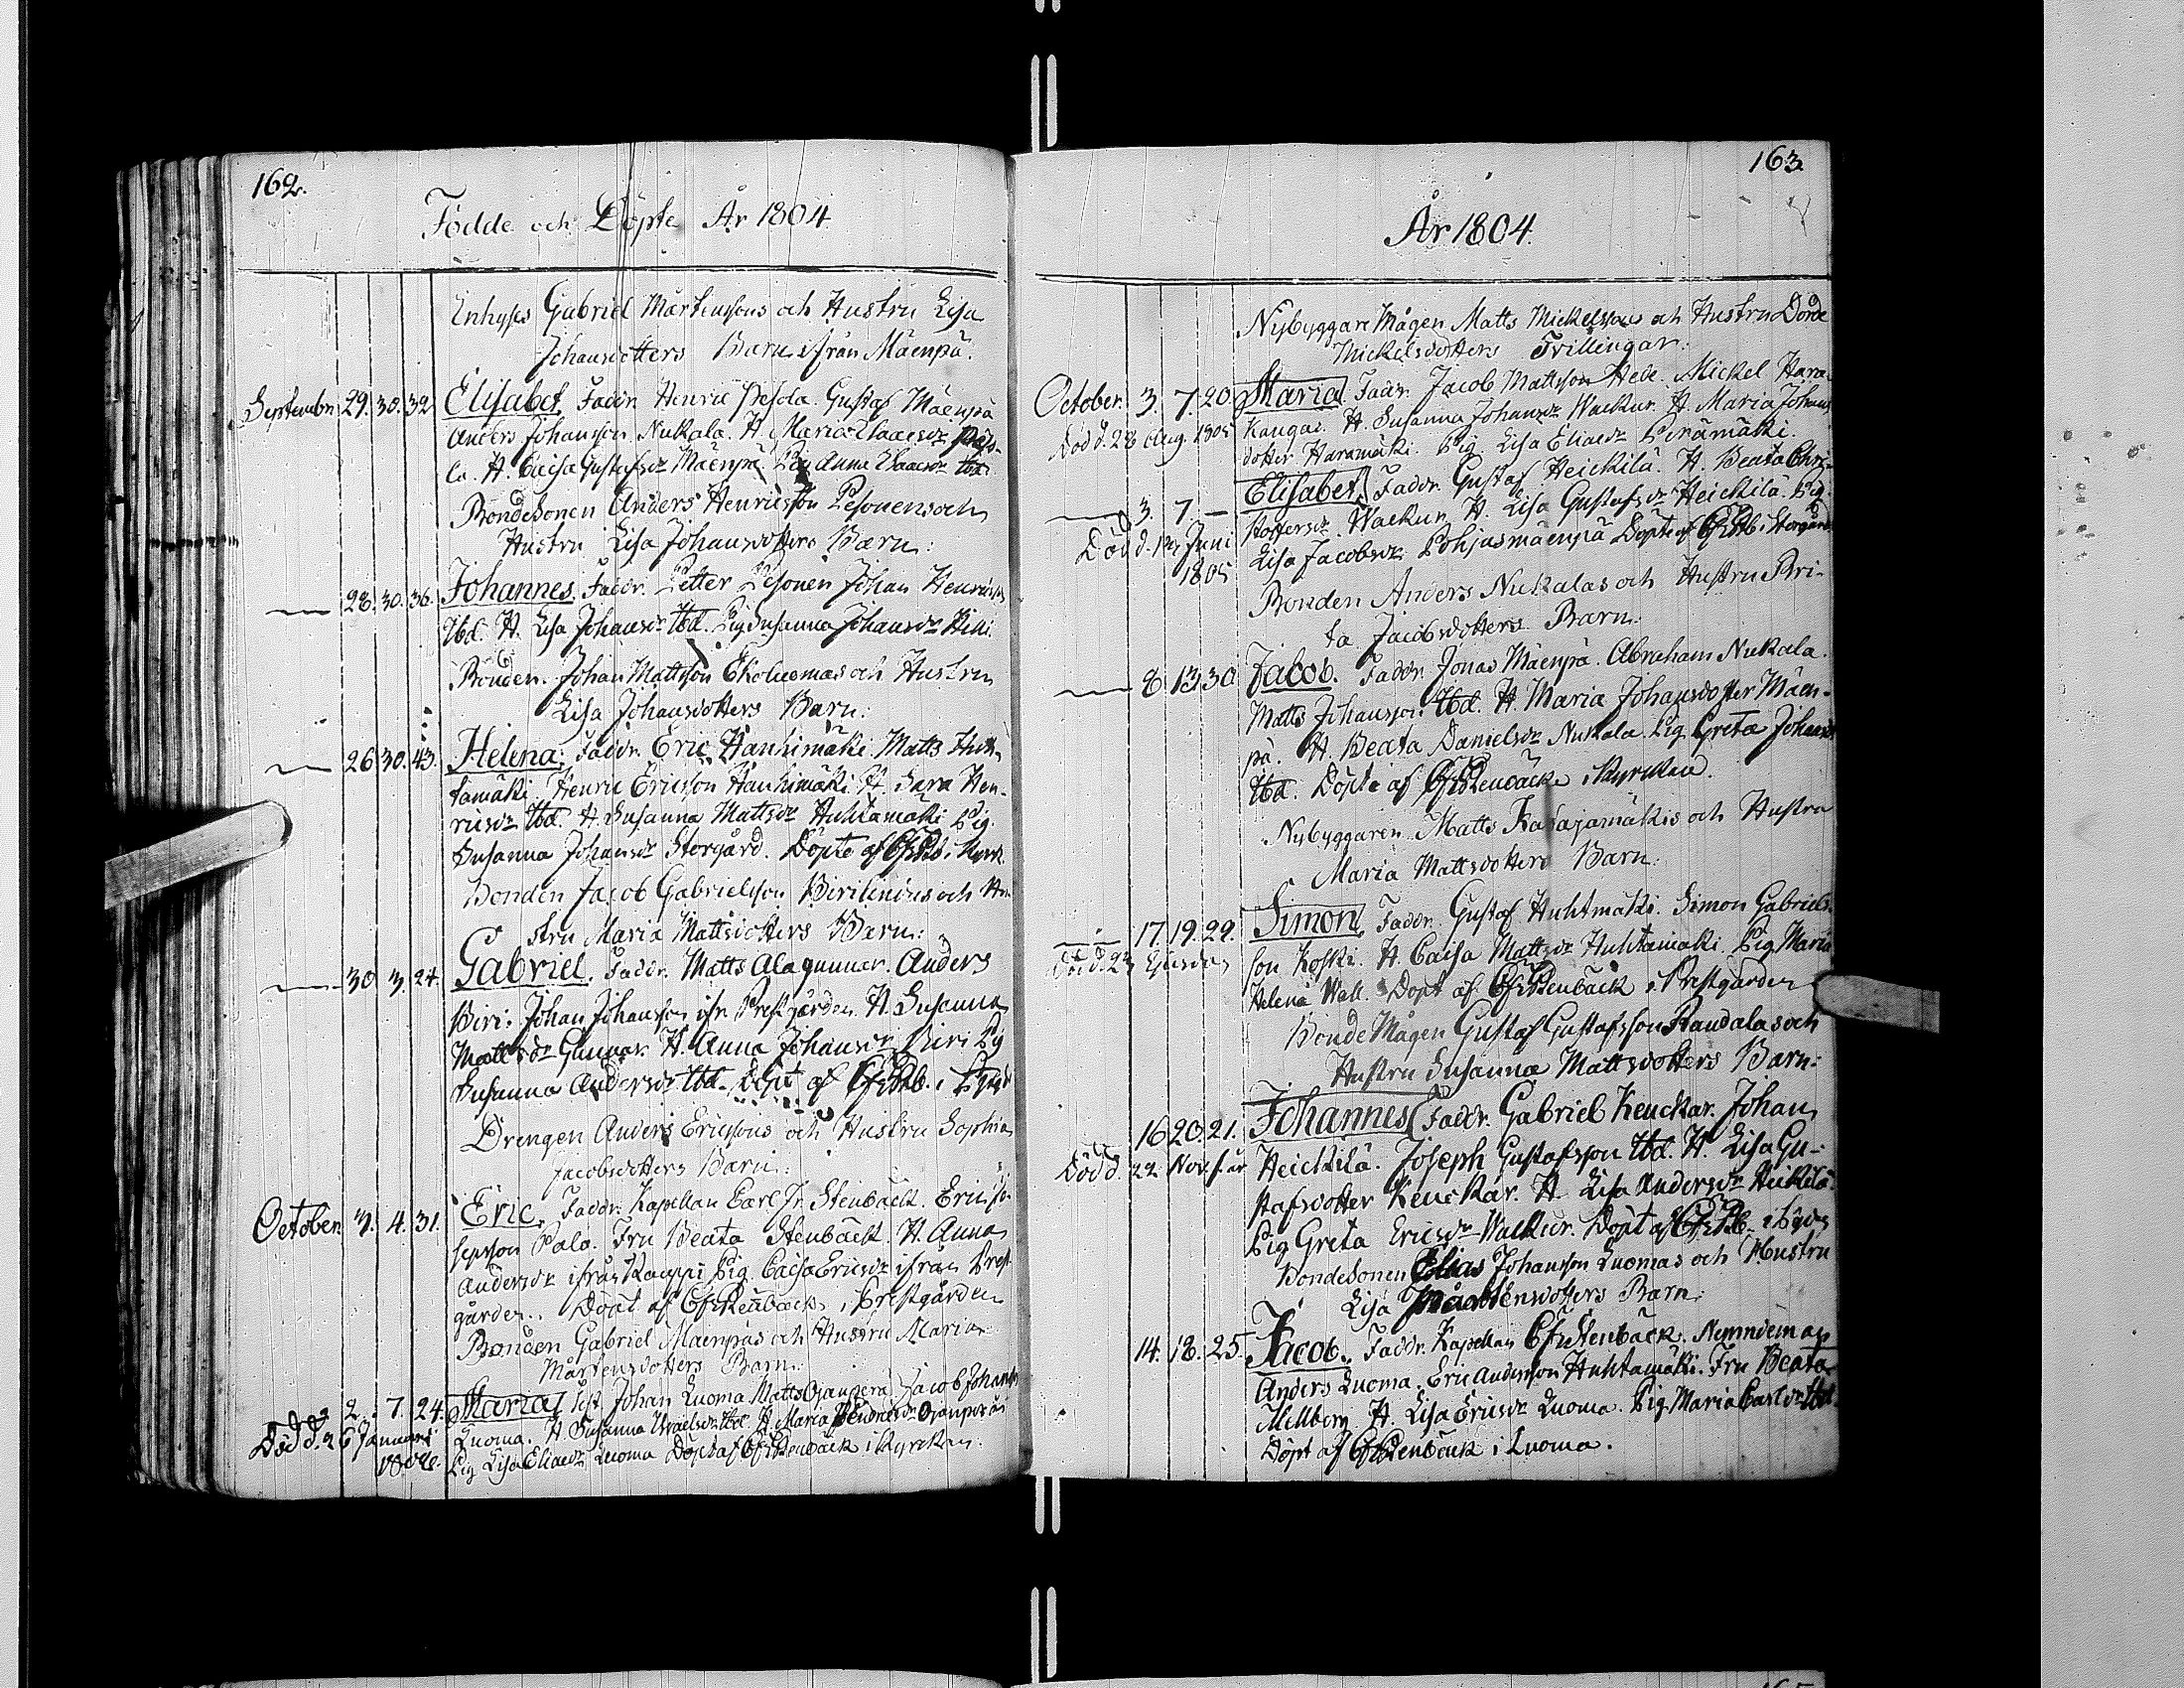 162.
Födde och Döpte År 1804.
Enhyses Gabriel Mårtenssons och Hustru Lisa
Johansdotters Barn ifrån Mäenpä.
September 29. 30. 32. Elisabet. Faddr. Henric Gustaf Mäenpä
Anders Johansson Nukala. H. Maria Isaacsdr
la. H. Caisa Gustafsdr Mäenpä. Pig Anna Isaacsdr Ibd.
Bondesonen Anders Henricsson Pesonens och
Hustru Lisa Johansdotters Barn:
28. 30. 36. Johannes. Faddr. Petter Pesonen Johan Henricss
Ibd. H. Lisa Johansdr Ibd. Pig Susanna Johansdr
Bonden Johan Mattsson Ekoluomas och Hustru
Lisa Johansdotters Barn:
26. 30. 43. Helena. Faddr. Eric Hanhimäki Matts Huh-
tamäki. Henric Ericsson Hanhimäki. H. Sara Hen-
ricsdr Ibd. H. Susanna Mattsdr Huhtamäki Pig.
Susanna Johansdr Storgård. Döpte af i Kyrk
Bonden Jacob Gabrielsson och Hu-
stru Maria Mattsdotters Barn:
30. 3. 24. Gabriel. Faddr. Matts Alagunnar. Anders
Piri. Johan Johansson ifr. Prestgården. H. Susanna
Mattsdr Gunnar. H. Anna Johansdr Piri Pig
Susanna Andersdr Ibd. Döpt af i
Drengen Anders Ericssons och Hustru Sophia
Jacobsdotters Barn:
October. 3. 4. 31. Eric. Faddr. Kapellan Carl Fr. Stenbäck. Eric Jo-
sepsson Palo. Fru Beata Stenbäck. H. Anna
Andersdr ifrån Kauppi Pig. Caisa Ericsdr ifrån Prest-
gården. Döpt af CFr Stenbäck i Prestgården
Bonden Gabriel Mäenpäs och Hustru Maria
Mårtensdotters Barn:
2. 7. 24. Maria. Test. Johan Luoma Matts Ojanperä. Jacob Johanss
Död d. 26 Januari Luoma. H. Susanna Israelsdr Ibd. H. Maria Henricsdr Ojanperä
Pig Lisa Eliaedr Luoma Döpt af CFr Stenbäck i Kyrckan.
163.
År 1804.
Nybyggare Mågen Matts Mickelssons och Hustru Dorde
Mickelsdotters Tvillingar:
October. 3. 7. 20. Maria. Faddr. Jacob Mattsson Hede. Mickel Hara-
Död d. 28 Aug. 1805 kangas. H. Susanna Johansdr Wackur. H. Maria Johans
dotter Haramäki. Pig. Lisa Eliaedr Perämäki.
3. 7. — Elisabet. Faddr. Gustaf Heickilä. H. Beata Chri-
stoffersdr Wackur H. Lisa Gustafsdr Heickilä. Pig.
Död d. Juni Lisa Jacobsdr Pohjasmäenpä Döpte af i Storgård
1805
Bonden Anders Nukalas och Hustru Bri-
ta Jacobsdotters Barn:
8. 13. 30. Jacob. Faddr. Jonas Mäenpä. Abraham Nukala.
Matts Johansson Ibd. H. Maria Johansdotter Mäen-
pä. H. Beata Danielsdr Nukala. Pig Greta Johansdr
Ibd. Döpte af CFr Stenbäck i Kyrckan.
Nybyggaren Matts Katajamäkis och Hustru
Maria Mattsdotters Barn:
17. 19. 29. Simon. Faddr. Gustaf Huhtmäki. Simon Gabriels-
Död d. 23 Ejusdem son Koski. H. Caisa Mattsdr Huhtamäki. Pig Maria
Helena Wall. Döpt af CFr Stenbäck i Prestgården
Bonde Mågen Gustaf Gustafsson Raudalas och
Hustru Susanna Mattsdotters Barn:
16. 20. 21. Johannes. Faddr. Gabriel Keuckar. Johan
Död d. 22 Nov. s. år Heickilä. Joseph Gustafsson Ibd. H. Lisa Gu-
stafsdotter Keuckar. H. Lisa Andersdr Heickilä.
Pig Greta Ericsdr Walkur. Döpt af i Byn
Bondesonen Elias Johansson Luomas och Hustru
Lisa Mårtensdotters Barn:
14. 18. 25. Jacob. Faddr. Kapellan CFr Stenbäck. Nämndeman
Anders Luoma. Eric Andersson Huhtamäki. Fru Beata
Mellberg H. Lisa Ericsdr Luoma. Pig Maria Carlsdr Ibd.
Döpt af CFr Stenbäck i Luoma.